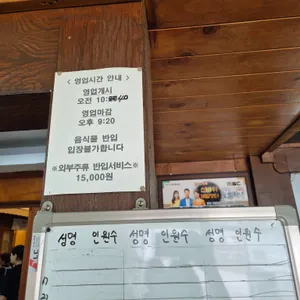 < 영업시간 안내 >
영업개시
오전 10:40
영업마감
오후 9:20
음식물 반입
입장불가합니다
※외부주류 반입서비스※
15,000원
MBC
성명 인원수 성명 인원수 성명 인원수